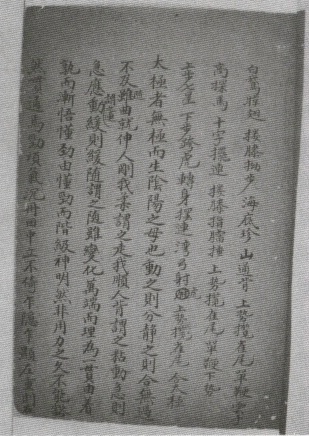 白鵞掠翅 摟膝抝步 海底珍 山通背 上势攬雀尾 單鞭 雲手
高探馬 十字擺連 摟膝指䐡捶 上势攬雀尾 單鞭下势
上步七星 下步跨虎 轉身擺連 灣弓射虎 上势攬雀尾 合太極
太極者無極而生陰陽之母也動之則分静之則合無過
不及隨曲就伸人剛我柔謂之走我順人背謂之粘動急則
急應動緩則緩隨謂之隨雖變化萬端而理為一貫由着
熟而漸悟懂劲由懂劲而階級神明然非用力之久不能豁
然貫通焉 劲頂 氣沉丹田中立不倚乍隱乍顯左重則左